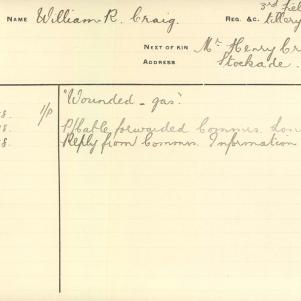 3rd Fiel
NAME William R. Craig. REG. &C. tillery
NEXT OF KIN Mr Henry Cr
ADDRESS Stockade.
"Wounded - gas".
8. 1/P
8. P/Cable forwarded Commrs. Lon
8. Reply from Commrs. Information